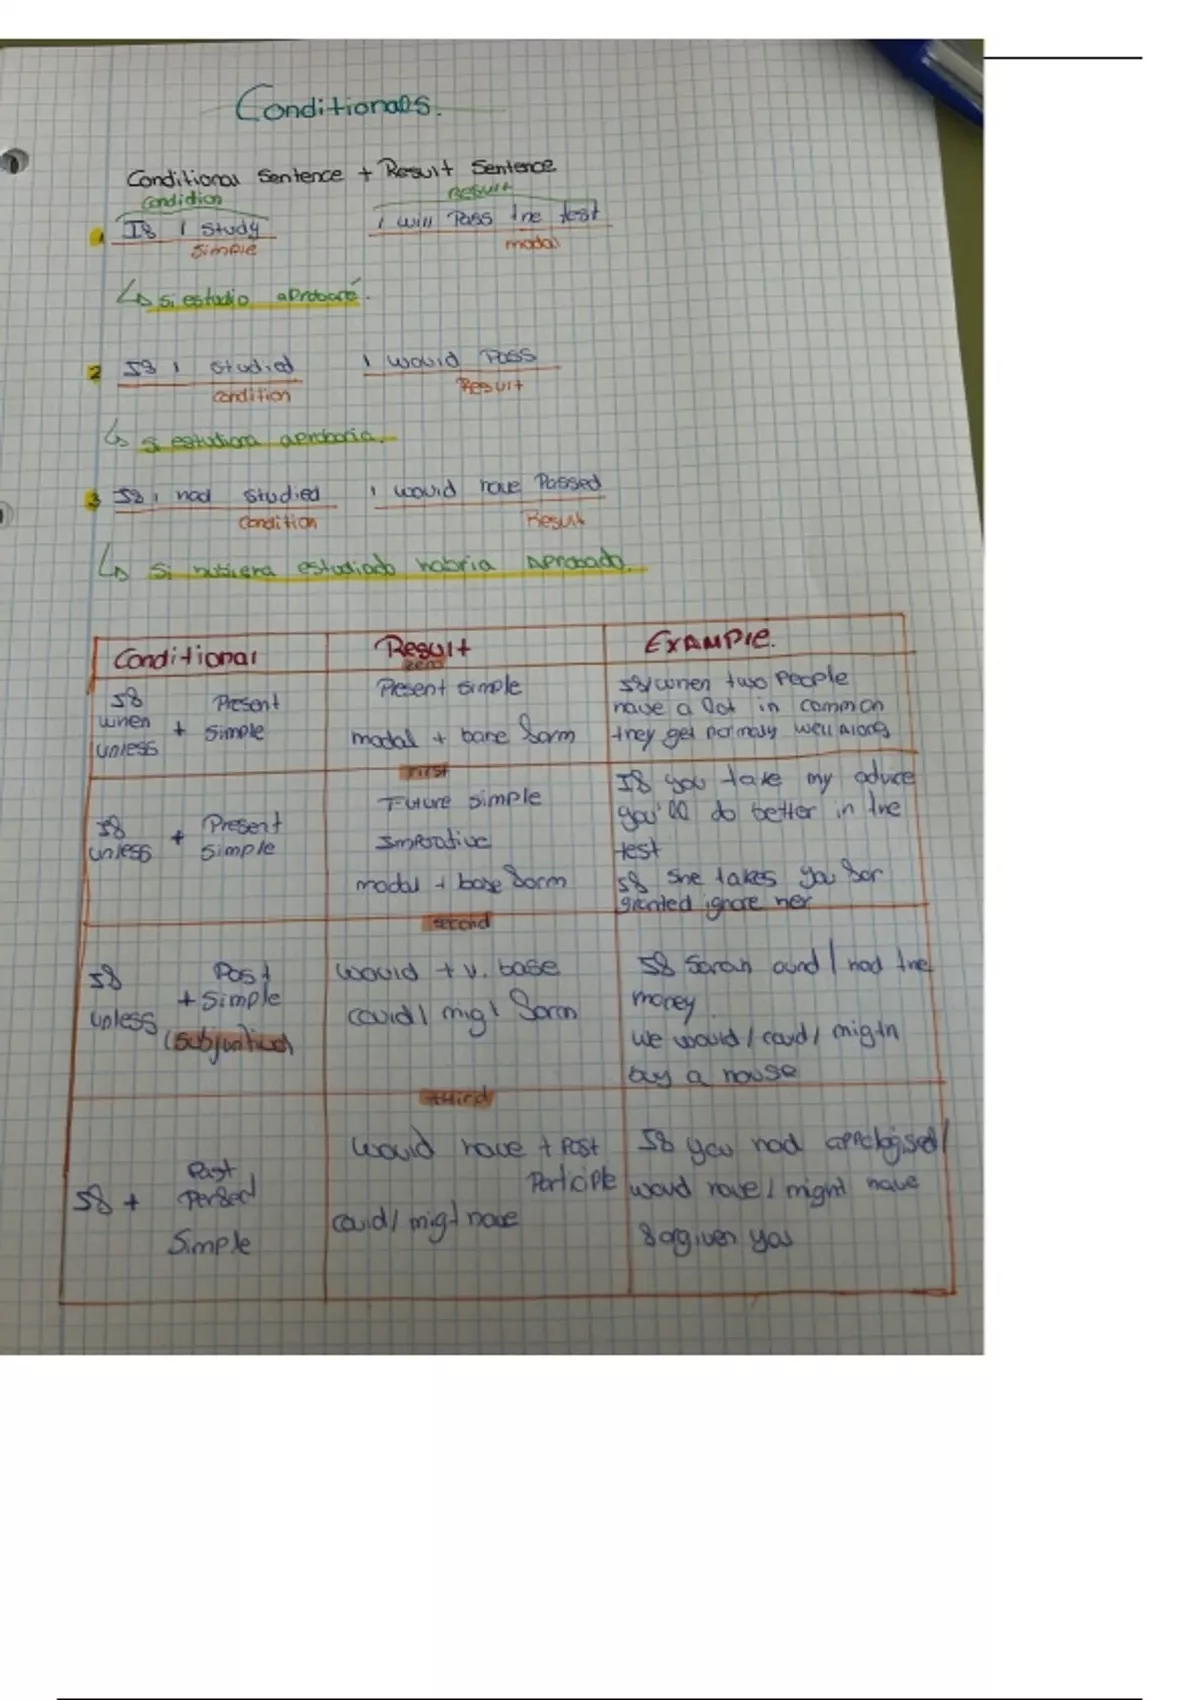 Conditionals.
Conditional Sentence + Result Sentence
Condidion Result
1 If I study I will Pass the test
Simple modal
↳ si estudio aprobaré.
2 If I studied I would Pass
Condition Result
↳ si estudiara aprobaria.
3 If I had studied I would have Passed
Condition Result
↳ Si hubiera estudiado habria Aprobado.
Conditional Result EXAMPlE.
zero
If when unless + Present Simple
Present simple
modal + bare form
If/when two People
have a lot in common
they get normaly well along
First
If unless + Present Simple
Future simple
Imperative
modal + base form
If you take my advice
you'll do better in the
test
If she takes you for
granted ignore her
second
If unless + Past Simple
(subjuntive)
would + v. base
could / migt form
If Sarah and I had the
money
we would / could / migth
buy a house
third
If + Past Perfect Simple
would have + Past
Participle
could / migt have
If you had appologised I
would have / might have
forgiven you